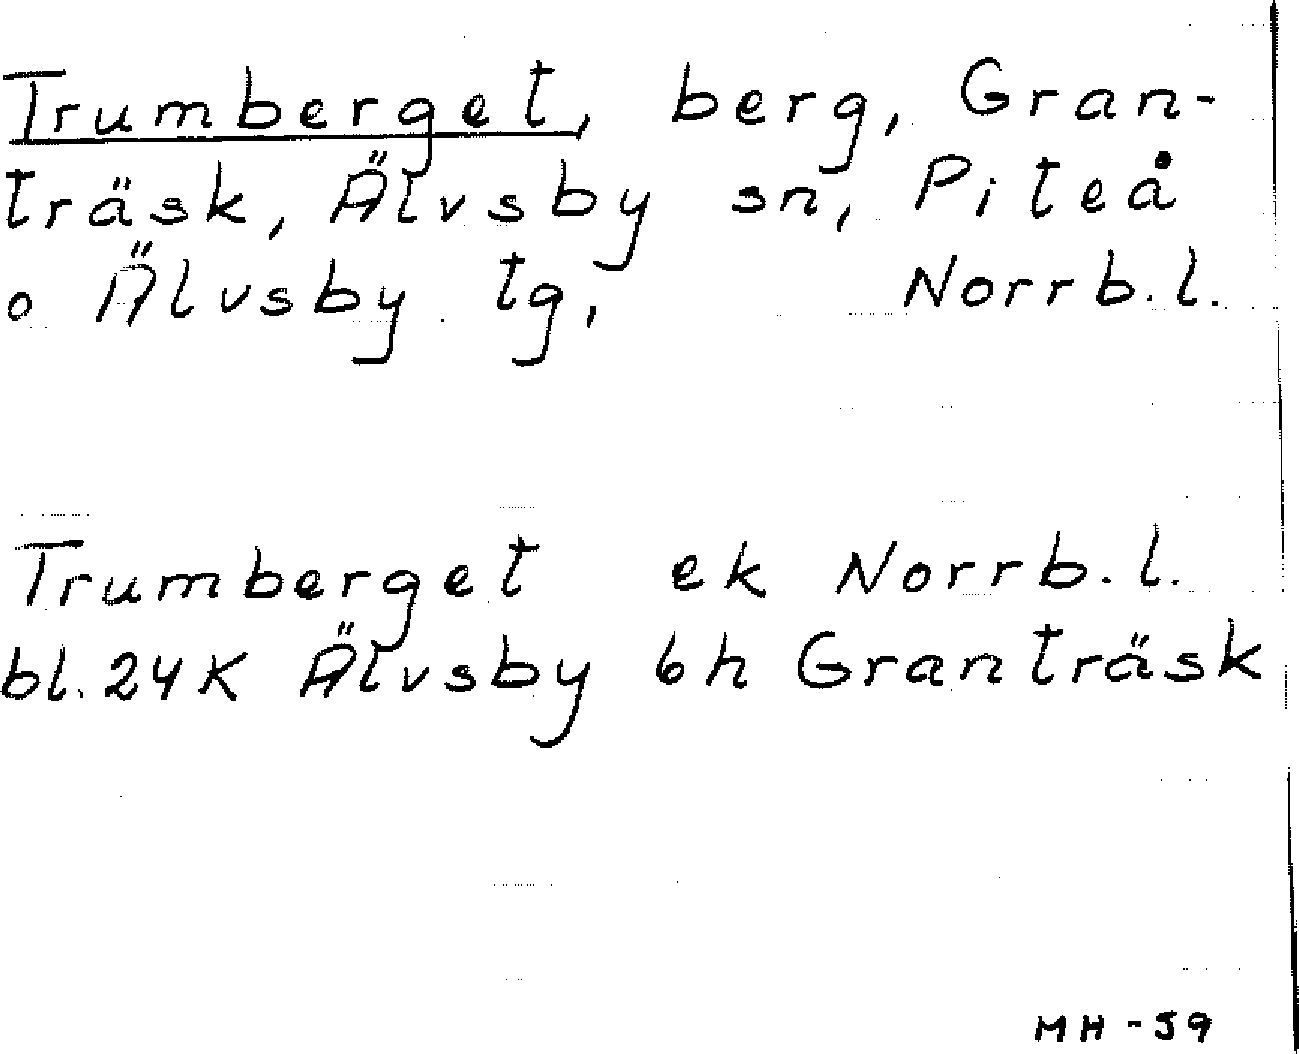 Trumberget, berg, Gran-
träsk, Älvsby sn, Piteå
o Älvsby tg, Norrb.l.
Trumberget ek Norrb.l.
bl. 24K Älvsby 6h Granträsk
MH-59